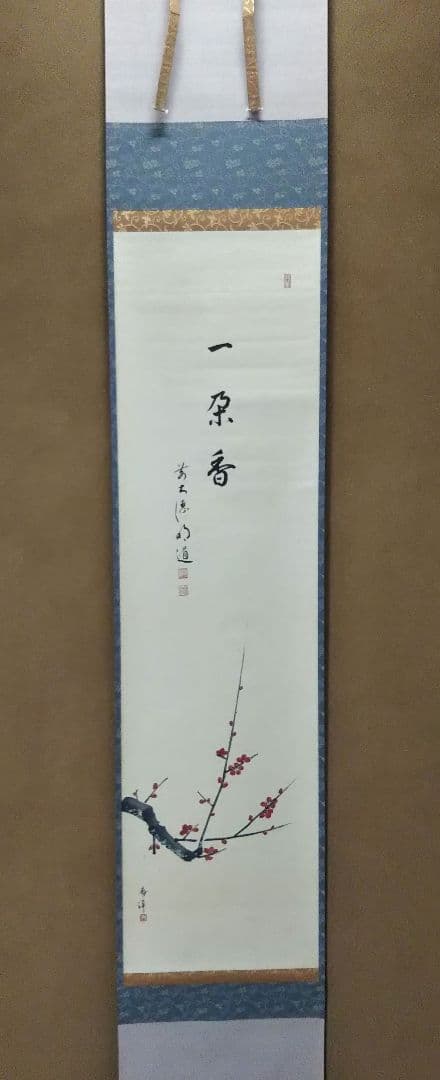 一朶香
前大徳明道